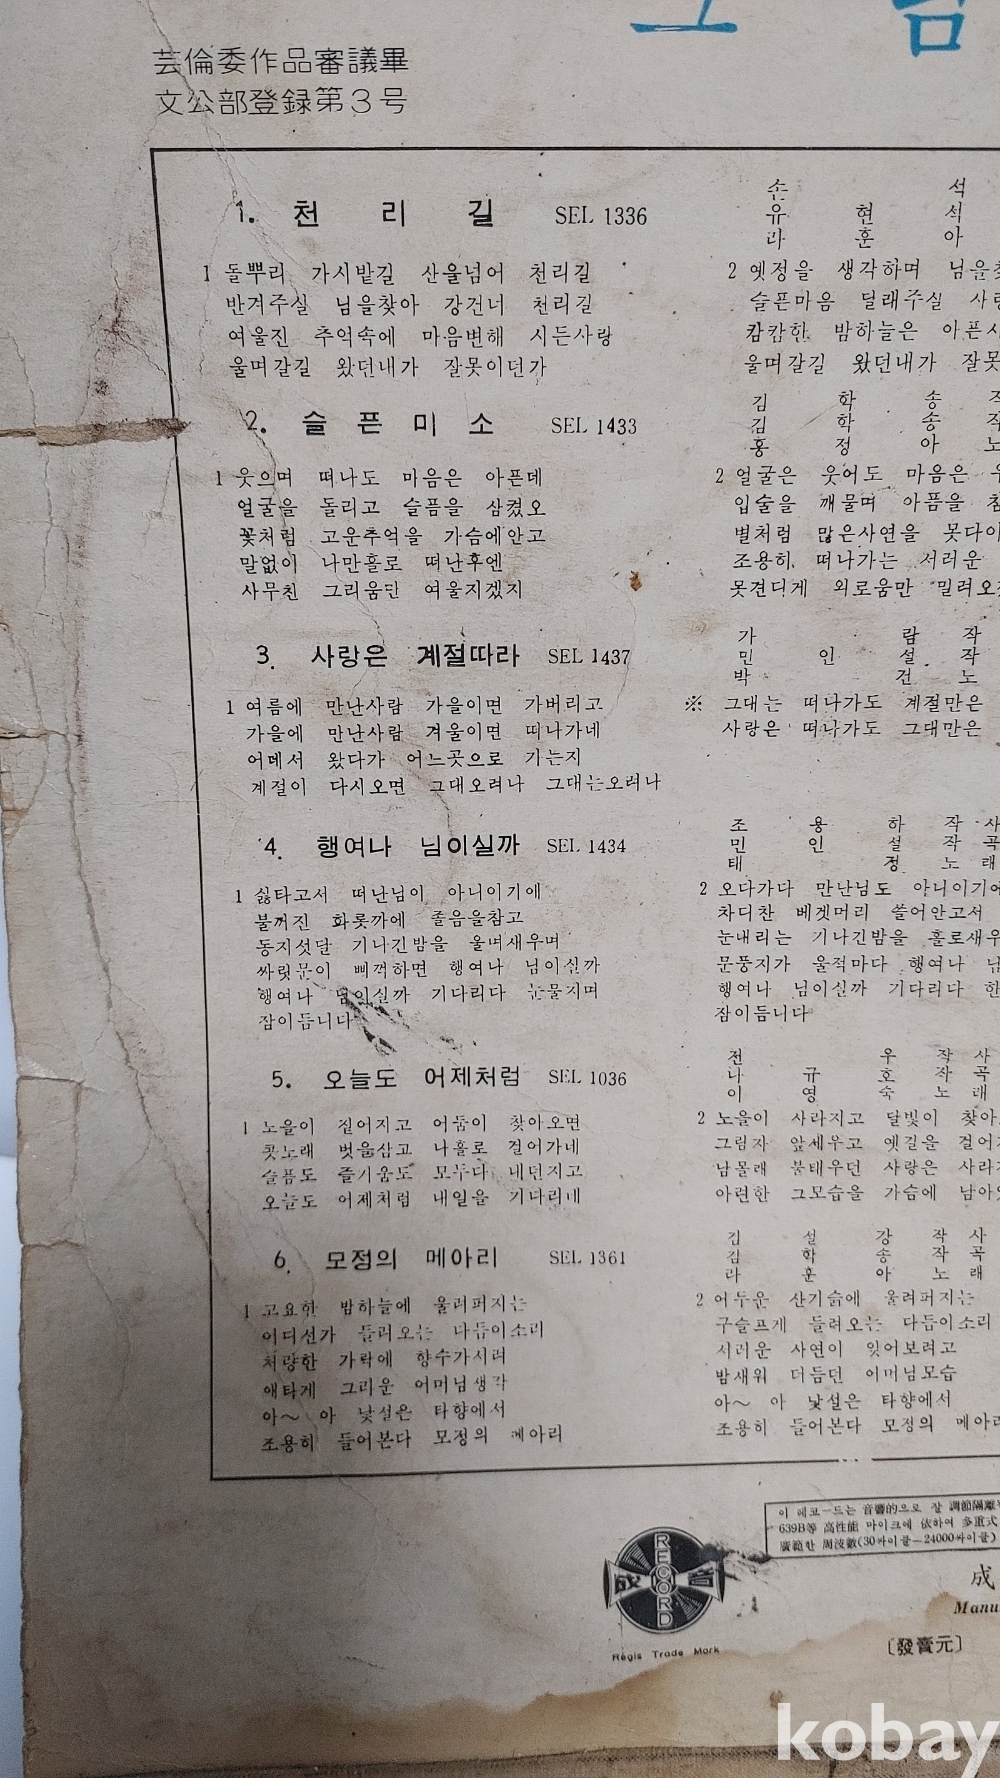 芸倫委作品審議畢
文公部登録第3号
1. 천 리 길 SEL 1336
손 석
유 현 석
라 훈 아
1 돌뿌리 가시밭길 산을넘어 천리길
반겨주실 님을찾아 강건너 천리길
여울진 추억속에 마음변해 시든사랑
울며갈길 왔던내가 잘못이던가
2 옛정을 생각하며 님을찾
슬픈마음 달래주실 사랑
캄캄한 밤하늘은 아픈사
울며갈길 왔던내가 잘못
2. 슬 픈 미 소 SEL 1433
김 학 송 작
김 학 송 작
홍 정 아 노
1 웃으며 떠나도 마음은 아픈데
얼굴을 돌리고 슬픔을 삼켰오
꽃처럼 고운추억을 가슴에안고
말없이 나만홀로 떠난후엔
사무친 그리움만 여울지겠지
2 얼굴은 웃어도 마음은
입술을 깨물며 아픔을 참
별처럼 많은사연을 못다이
조용히 떠나가는 서러운
못견디게 외로움만 밀려오
3. 사랑은 계절따라 SEL 1437
가 람 작
민 인 설 작
박 건 노
1 여름에 만난사람 가을이면 가버리고
가을에 만난사람 겨울이면 떠나가네
어데서 왔다가 어느곳으로 가는지
계절이 다시오면 그대오려나 그대는오려나
※ 그대는 떠나가도 계절만은
사랑은 떠나가도 그대만은
4. 행여나 님이실까 SEL 1434
조 용 하 작 사
민 인 설 작 곡
태 정 노 래
1 싫타고서 떠난님이 아니이기에
불꺼진 화롯까에 졸음을참고
동지섯달 기나긴밤을 울며새우며
싸릿문이 삐꺽하면 행여나 님이실까
행여나 님이실까 기다리다 눈물지며
잠이듭니다
2 오다가다 만난님도 아니이기에
차디찬 베겟머리 쓸어안고서
눈내리는 기나긴밤을 홀로새우
문풍지가 울적마다 행여나 님
행여나 님이실까 기다리다 한
잠이듭니다
5. 오늘도 어제처럼 SEL 1036
전 우 작 사
나 규 호 작 곡
이 영 숙 노 래
1 노을이 짙어지고 어둠이 찾아오면
콧노래 벗을삼고 나홀로 걸어가네
슬픔도 즐거움도 모두다 내던지고
오늘도 어제처럼 내일을 기다리네
2 노을이 사라지고 달빛이 찾아
그림자 앞세우고 옛길을 걸어
남몰래 불태우던 사랑은 사라
아련한 그모습을 가슴에 남아
6. 모정의 메아리 SEL 1361
김 설 강 작 사
김 학 송 작 곡
라 훈 아 노 래
1 고요한 밤하늘에 울려퍼지는
어디선가 들려오는 다듬이소리
처량한 가락에 향수가시려
애타게 그리운 어머님생각
아～ 아 낯설은 타향에서
조용히 들어본다 모정의 메아리
2 어두운 산기슭에 울려퍼지는
구슬프게 들려오는 다듬이소리
서러운 사연이 잊어보려고
밤새워 더듬던 어머님모습
아～ 아 낯설은 타향에서
조용히 들어본다 모정의 메아리
이 레코ー드는 音響的으로 잘 調節隔離
639B等 高性能 마이크에 依하여 多重式
廣範한 周波數(30싸이클ー24000싸이클)
成 音
RECORD
Regis Trade Mark
成
Manu
〔發賣元〕
kobay